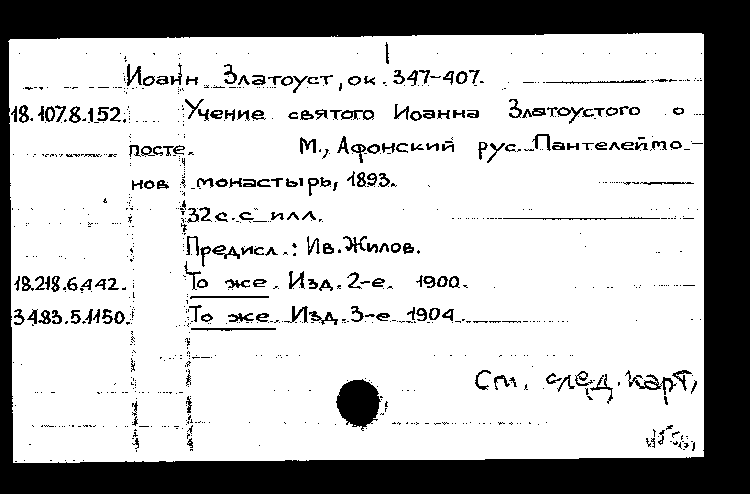 Иоанн Златоуст, ок. 347-407.
18.107.8.152. Учение святого Иоанна Златоустого о
посте. М., Афонский рус. Пантелеймо-
нов монастырь, 1893.
32 с. с илл.
Предисл.: Ив. Жилов.
18.218.6.442. То же. Изд. 2-е. 1900.
34.83.5.1150. То же. Изд. 3-е 1904.
См. след. карт,